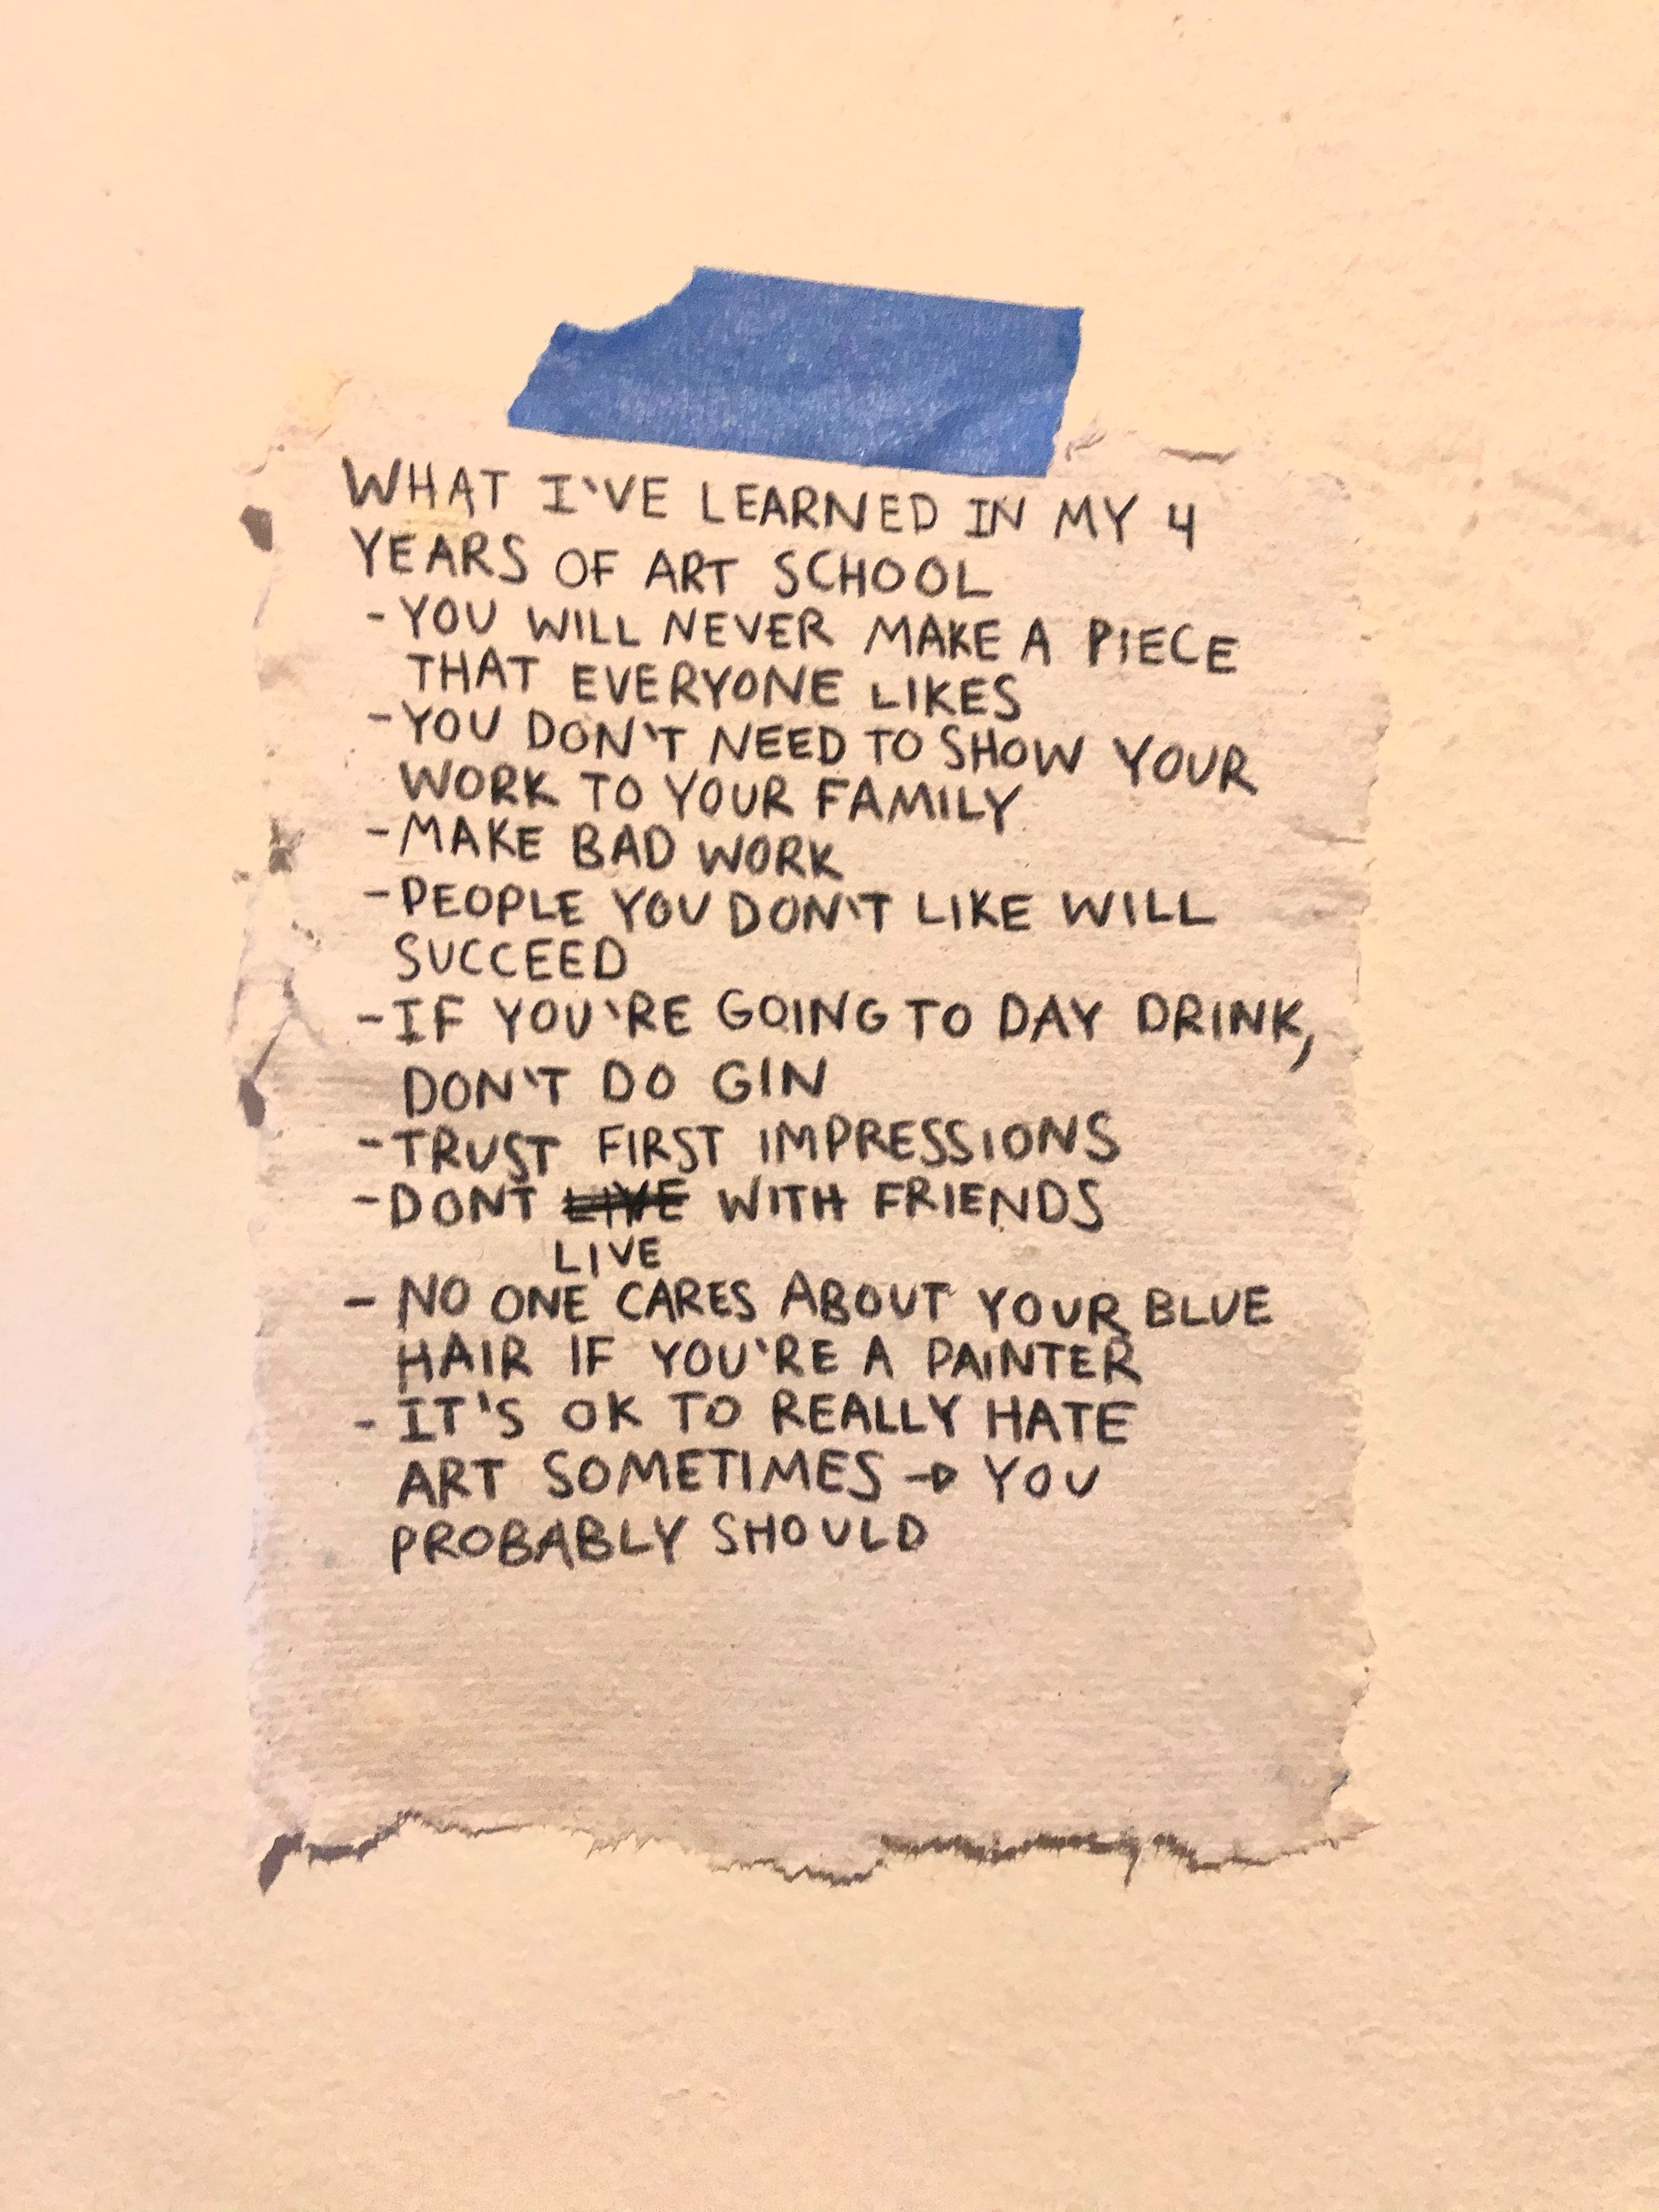 WHAT I'VE LEARNED IN MY 4
YEARS OF ART SCHOOL
-YOU WILL NEVER MAKE A PIECE
THAT EVERYONE LIKES
-YOU DON'T NEED TO SHOW YOUR
WORK TO YOUR FAMILY
-MAKE BAD WORK
-PEOPLE YOU DON'T LIKE WILL
SUCCEED
-IF YOU'RE GOING TO DAY DRINK,
DON'T DO GIN
-TRUST FIRST IMPRESSIONS
-DONT LIVE WITH FRIENDS
LIVE
- NO ONE CARES ABOUT YOUR BLUE
HAIR IF YOU'RE A PAINTER
- IT'S OK TO REALLY HATE
ART SOMETIMES → YOU
PROBABLY SHOULD